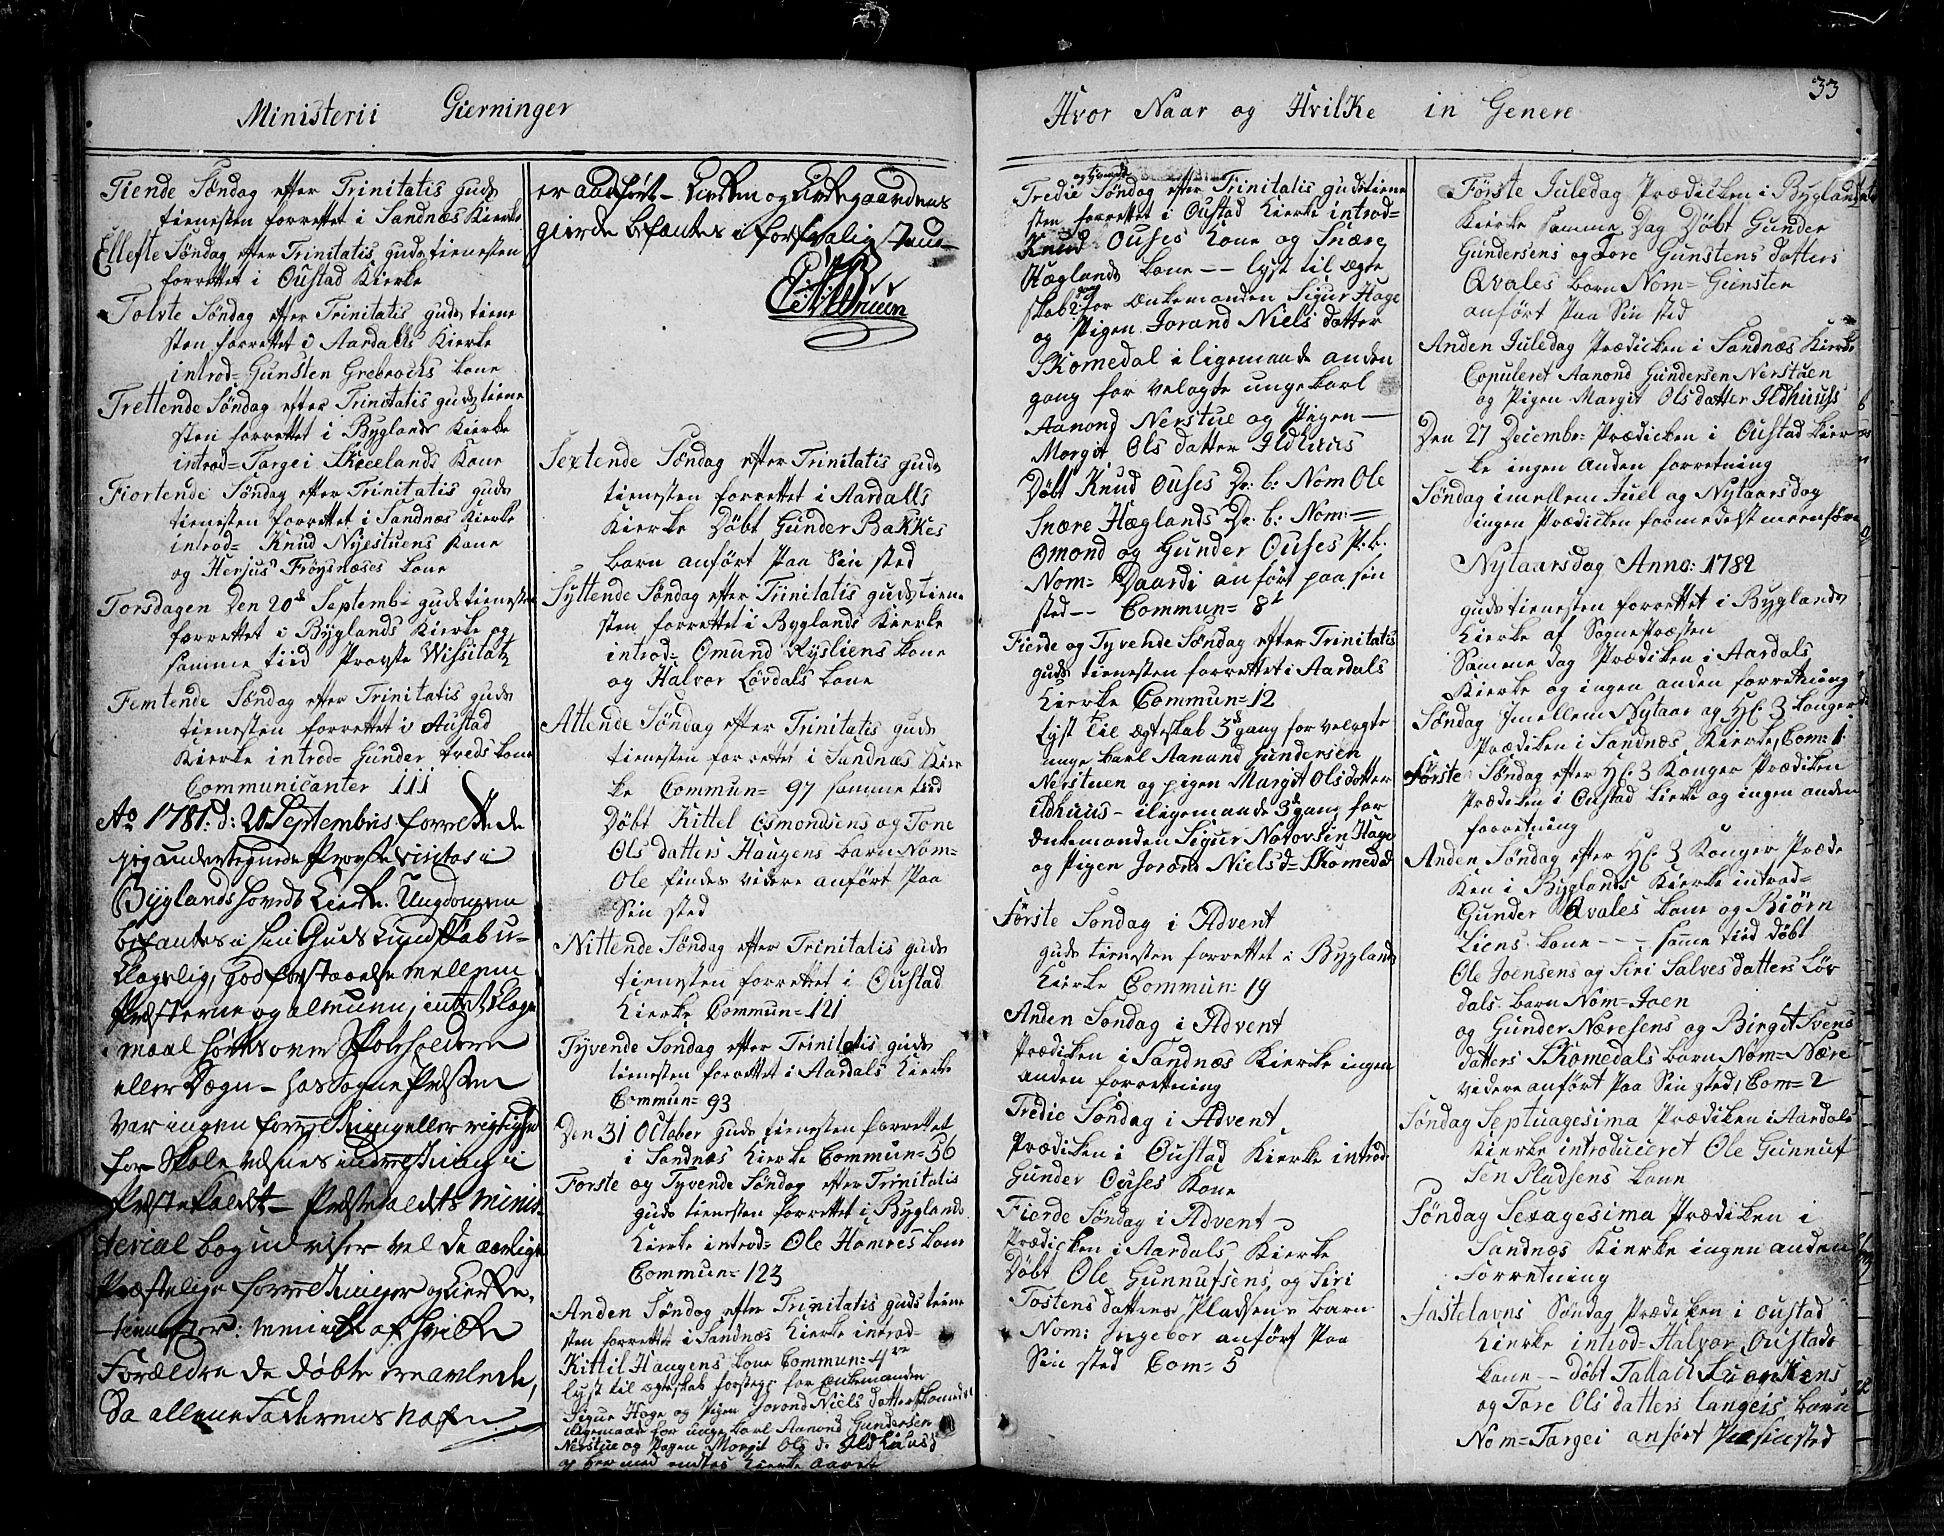 Ministerii Gierninger
Tiende Søndag efter Trinitatis guds
tienesten forrettet i Sandnæs Kierke
Ellefte Søndag efter Trinitatis guds tienesten
forrettet i Oustad Kierke
Tolvte Søndag efter Trinitatis guds tiene
sten forrettet i Aardalls Kierke
introd= Gunsten Grebrocks kone
Trettende Søndag efter Trinitatis guds tiene
sten forrettet i Byglands Kierke
introd= Targei Skeelands Kone
Fiortende Søndag efter Trinitatis guds
tienesten forrettet i Sandnæs Kierke
introd= Knud Nyestuens Kone
og Herjus Frøysnæses kone
Torsdagen Den 20de Septemb= guds tienesten
forrettet i Byglands Kierke og
samme tiid Provste Wissitatz
Femtende Søndag efter Trinitatis guds
tienesten forrettet i Austad
Kierke introd= Gunder treds kone
Communicanter 111
Ao 1781: d: 20 Septembris forrettede
jeg undertegnede Provste visitas i
Byglands hoved Kierke. Ungdommen
befantes i sin Guds Kundskab u-
klagelig, god forstaaelse mellem
Præsterne og almuen, intet Klage
maal hørtes over Skoleholderne
eller Degn – hos Sogne Præsten
var ingen forrettning eller rigtighed
for Skole væsnes indrettning i
Præste Kaldet – Præstekaldets minis-
terial bog udviser vel de aarlige
Præstelige forrettninger og Kierke-
tienester: men icke af hvilke
Forældre de døbte ere avlede,
da allene Faderens nafn
er aarført – Kirken og Kirkegaardens
gierde befantes i forsvalig stand

Sextende Søndag efter Trinitatis guds
tienesten forrettet i Aardalls
Kierke Døbt Gunder Bakkes
barn anført Paa Sin sted
Syttende Søndag efter Trinitatis guds tiene
sten forrettet i Byglands Kierke
introd= Omund Rysliens kone
og Halvor Løvdals kone
Attende Søndag efter Trinitatis guds
tienesten forrettet i Sandnæs Kier
ke Commun= 97 samme tiid
Døbt Kittel Osmondsens og Tone
Ols datters Haugens barn Nom=
Ole findes videre anført Paa
Sin sted
Nittende Søndag efter Trinitatis guds
tienesten forrettet i Oustad
Kierke Commun= 121
Tyvende Søndag efter Trinitatis guds
tienesten forrettet i Aardals Kierke
Commun= 93
Den 31 October guds tienesten forrettet
i Sandnæs Kierke Commun= 56
Første og Tyvende Søndag efter Trinitatis
guds tienesten forrettet i Byglands
Kierke introd= Ole Homres kone
Commun= 123
Anden Søndag efter Trinitatis guds tiene
sten forrettet i Sandnæs Kierke introd=
Kittil Haugens kone Commun: 4re
lyst til ægteskab førstegg for Enkemanden
Sigur Hage og Pigen Jorond Niels datter Skomedal
iligemaade for unge karl Aanond Gundersen
Nerstue og Pigen Morgit Ols d. Ildhuus
og her med endtes Kierke aaret

Hvor Naar og Hvilke in Genere
33
og tyvende
Tredie Søndag efter Trinitatis guds tiene
sten forrettet i Oustad Kierke introd=
Knud Ouses kone og Snære
Hæglands kone -- lyst til ægte
skab 2 gang for Enkemanden Sigur Hage
og Pigen Jorand Niels datter
Skomedal i ligemaade anden
gang for velagte unge karl
Aanond Nerstue og Pigen —
Morgit Ols datter Ildhuus
Døbt Knud Ouses Dr: b: Nom Ole
Snære Hæglands Dr: b: Nom: =
Omond og Gunder Ouses P. b.
Nom= Daardi anført paa sin
sted -- Commun= 8te
Fierde og Tyvende Søndag efter Trinitatis
guds tienesten forrettet i Aardals
Kierke Commun= 12
Lyst til ægteskab 3de gang for velagte
unge karl Aanund Gundersen
Nerstuen og pigen Margit Olsdatter
Ildhuus – iligemaade 3de gang for
Enkemanden Sigur Notovsen Hage
og Pigen Jorond Niels d= Skomedal
Første Søndag i Advent
guds tienesten forrettet i Byglands
Kierke Commun: 19
Anden Søndag i Advent
Prædicken i Sandnæs Kierke ingen
anden forrettning
Tredie Søndag i Advent
Prædicken i Oustad Kierke introd
Gunder Ouses Kone
Fierde Søndag i Advent
Prædicken i Aardals Kierke
Døbt Ole Gunnufsens og Siri
Tostens datters Pladsens barn
Nom: Ingebor anført Paa
Sin sted Com= 5

Første Juledag Prædicken i Byglands
Kierke samme Dag Døbt Gunder
Gundersens og Tore Gunstens datters
Qvales barn Nom= Gunsten
anført Paa Sin sted
Anden Juledag Prædicken i Sandnæs Kierke
Copuleret Aanond Gundersen Nerstuen
og Pigen Margit Ols datter Ildhuuss
Den 27 Decembr: Prædicken i Oustad Kier
ke ingen anden forretning
Søndag imellem Juel og Nytaarsdag
ingen Prædicken formedelst meenføre
Nytaarsdag Anno: 1782
guds tienesten forrettet i Byglands
Kierke af Sognepræsten
Samme dag Prædicken i Aardals
Kierke og ingen anden forretning
Søndag Jmellem Nytaar og Hl: 3 konger
Prædicken i Sandnæs Kierke, Com: 1
Første Søndag efter Hl: 3 Konger Prædicken
Prædicken i Oustad Kierke og ingen anden
forretning
Anden Søndag efter Hl: 3 Konger Præde
Ken i Byglands Kierke introd=
Gunder Qvales kone og Biørn
Liens kone --- same tiid døbt
Ole Joensens og Siri Salves datters Løv
dals barn Nom= Joen
og Gunder Næresens og Birgit Svens
datters Skomedals barn Nom= Nære
videre anført Paa Sin sted, Com= 2
Søndag Septuagesima Prædicken i Aardals
Kierke introduceret Ole Gunnuf
sen Pladsens kone
Søndag Sexagesima Prædicken i
Sandnæs Kierke ingen anden
Forretning
Fastelavns Søndag Prædicken i Oustad
Kierke introd= Halvor Oustads
kone -- døbt Tallak
og Tore Ols datters Langeis barn
Nom= Targei anført Paa sin sted